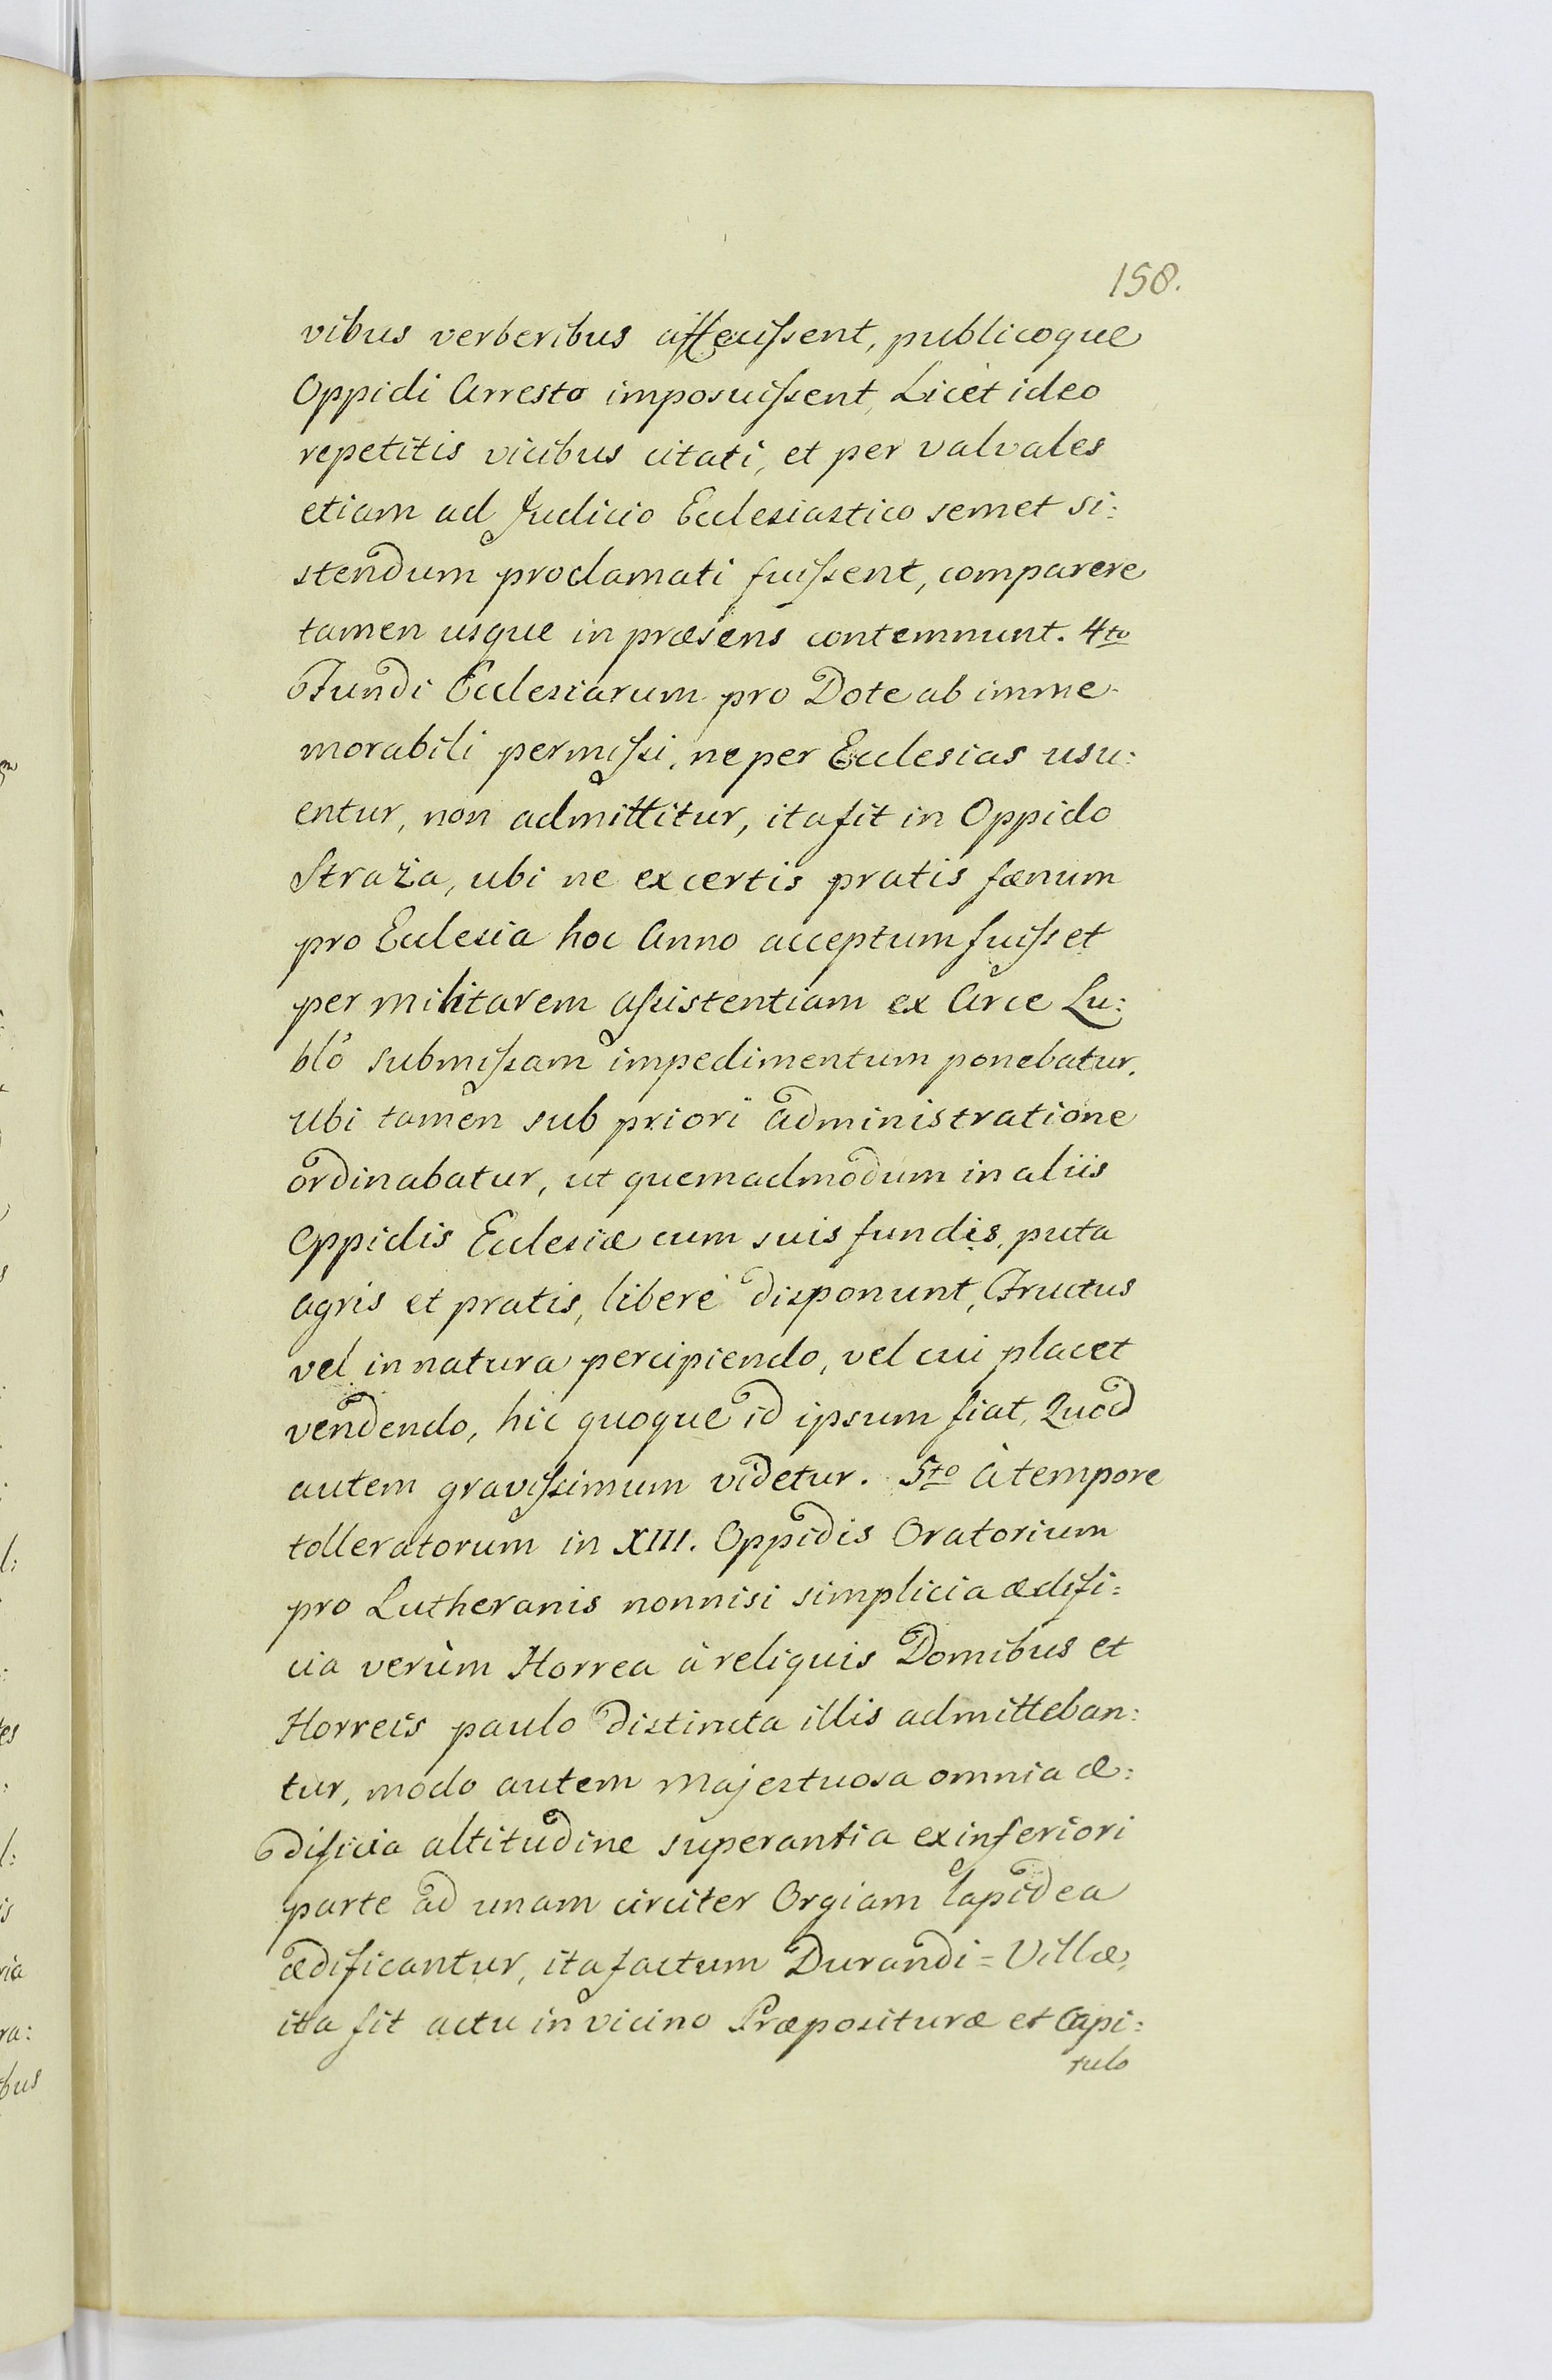 158.
vibus verberibus affecissent, publicoque
Oppidi Arresto imposuissent, Licet ideo
repetitis vicibus citati, et per valvales
etiam ad Judicio Ecclesiastico semet si:
stendum proclamati fuissent, comparere
tamen usque in præsens contemnunt. 4to
Fundi Ecclesiarum pro Dote ab imme-
morabili permissi, ne per Ecclesias usu:
entur, non admittitur, ita fit in Oppido
Straża, ubi ne ex certis pratis fœnum
pro Ecclesia hoc Anno acceptum fuisset
per militarem assistentiam ex Arce Lu:
bló submissam impedimentum ponebatur.
Ubi tamen sub priori administratione
ordinabatur, ut quemadmodum in aliis
Oppidis Ecclesiæ cum suis fundis, puta
agris et pratis, liberè disponunt, Fructus
vel in natura percipiendo, vel cui placet
vendendo, hic quoque id ipsum fiat, Quod
autem gravissimum videtur. 5to à tempore
tolleratorum in XIII. Oppidis Oratorium
pro Lutheranis nonnisi simplicia ædifi:
cia verùm Horrea à reliquis Domibus et
Horreis paulo distincta illis admitteban:
tur, modo autem Majestuosa omnia æ:
dificia altitudine superantia ex inferiori
parte ad unam circiter Orgiam lapidea
ædificantur, ita factum Durandi=Villæ,
ita fit actu in vicino Præpositure et Capi:
tulo